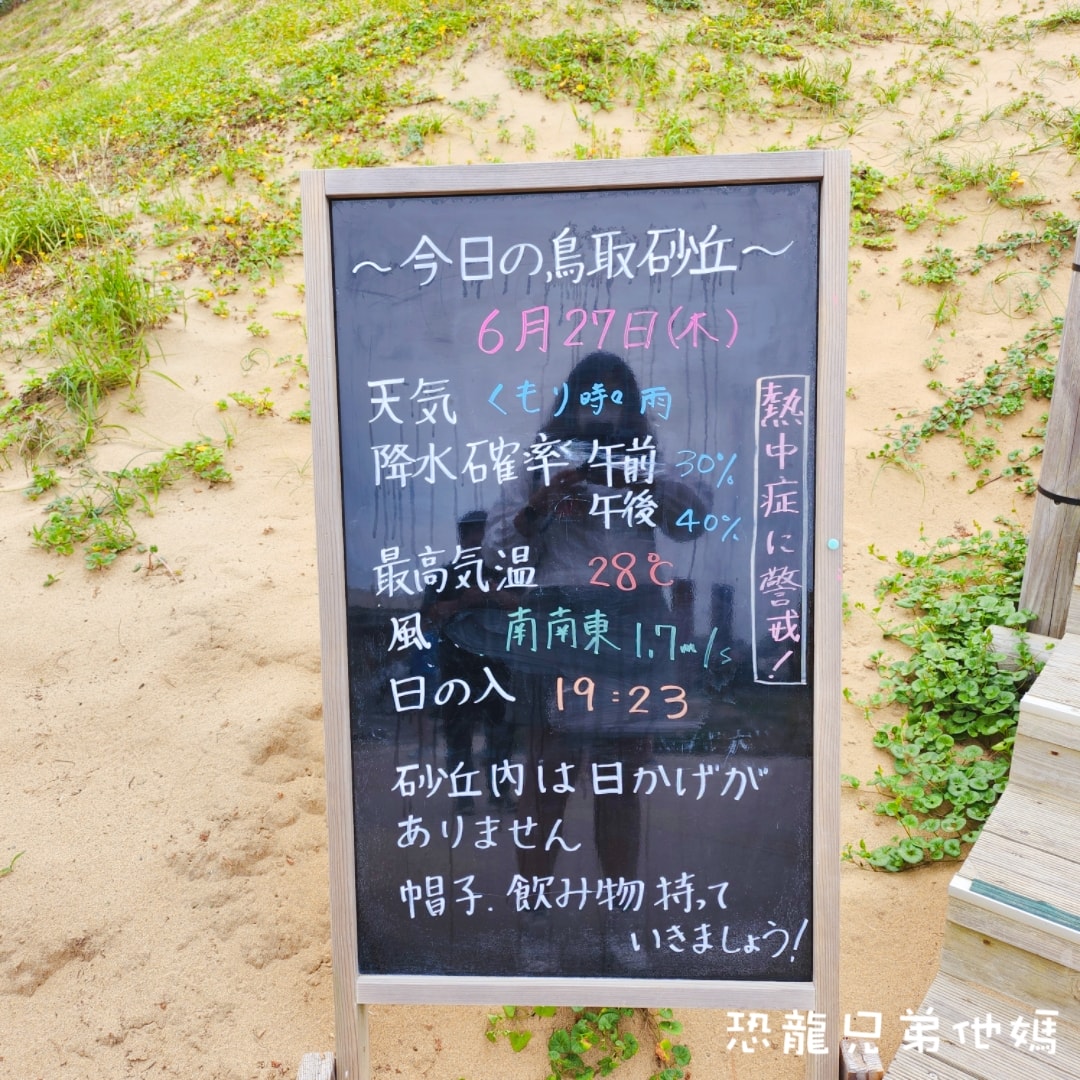 ～今日の鳥取砂丘～
6月27日(木)
天気 くもり時々雨
降水確率 午前 30%
午後 40%
最高気温 28℃
風 南南東 1.7m/s
日の入 19:23
熱中症に警戒!
砂丘内は日かげが
ありません
帽子.飲み物持って
いきましょう!
恐龍兄弟他媽